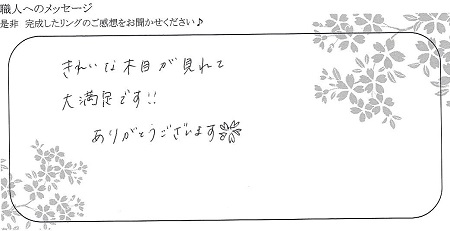 職人へのメッセージ
是非 完成したリングのご感想をお聞かせください♪
きれいな木目が見れて
大満足です!!
ありがとうございます